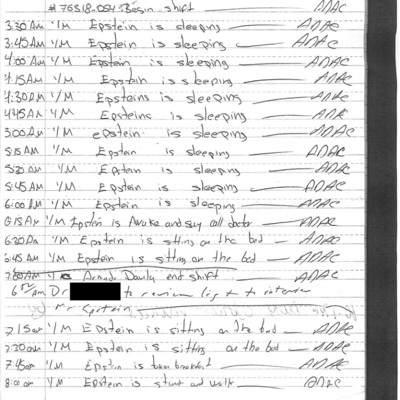 #76318-054 Begin shift ADAC
3:30 AM I/M Epstein is sleeping ADAC
3:45 AM I/M Epstein is sleeping ADAC
4:00 AM I/M Epstein is sleeping ADAC
4:15 AM I/M Epstein is sleeping ADAC
4:30 AM I/M Epsteins is sleeping ADAC
4:45 AM I/M Epsteins is sleeping ADAC
5:00 AM I/M epstein is sleeping ADAC
5:15 AM I/M Epstein is sleeping ADAC
5:30 AM I/M Epstein is sleeping ADAC
5:45 AM I/M Epstein is sleeping ADAC
6:00 AM I/M Epstein is sleeping ADAC
6:15 AM I/M Epstein is Awake and say call doctor ADAC
6:30 AM I/M Epstein is sitting on the bed ADAC
6:45 AM I/M Epstein is sitting on the bed ADAC
7:00 AM end shift ADAC
AM Dr to review log + to interview
Mr Epstein
7:15 am I/M Epstein is sitting on the bed ADAC
7:30 AM I/M Epstein is sitting on the bed ADAC
7:45 am I/M Epstein is breakfast ADAC
8:00 am I/M Epstein is and ADAC